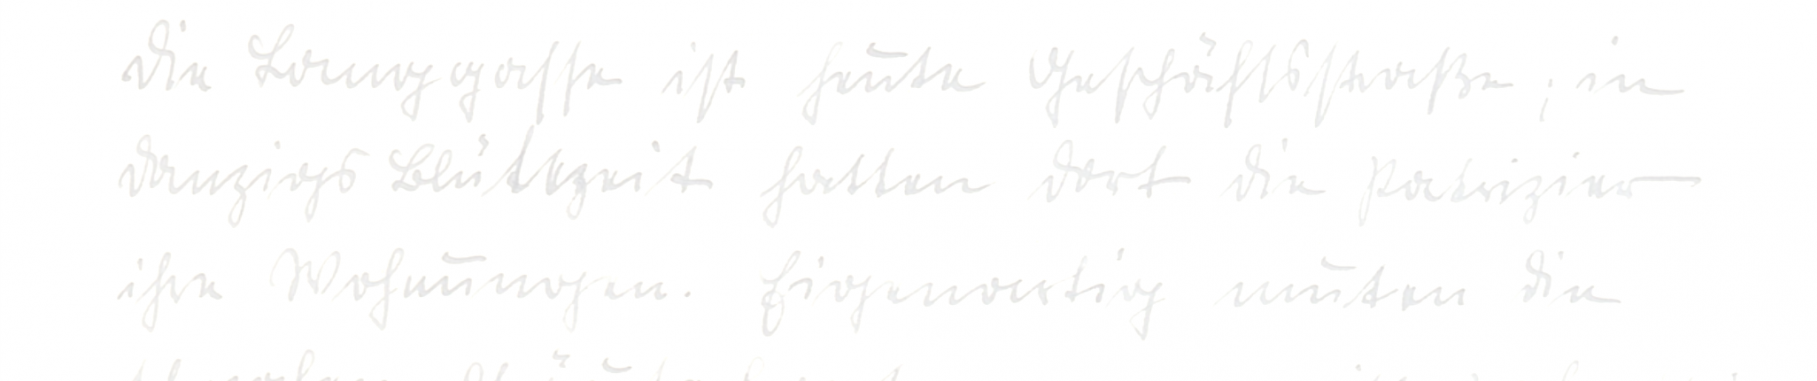 Die Langgasse ist heute Geschäftsstraße; in
Danzigs Blütezeit hatten dort die Patrizier
ihre Wohnungen. Eigenartig muten die